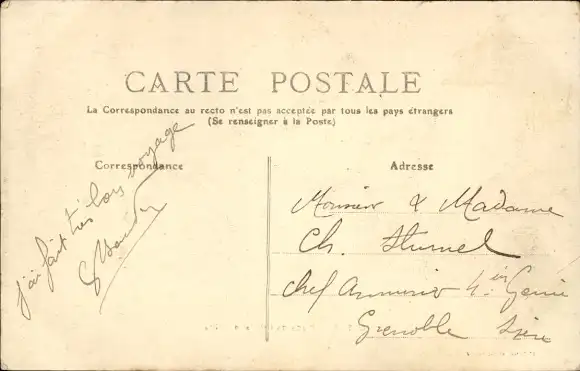 CARTE POSTALE
La Correspondance au recto n'est pas acceptée par tous les pays étrangers
(Se renseigner à la Poste)
Correspondance
j'ai fait très bon voyage
Adresse
Monsieur & Madame
Ch.
chef 4e Génie
Grenoble Isère